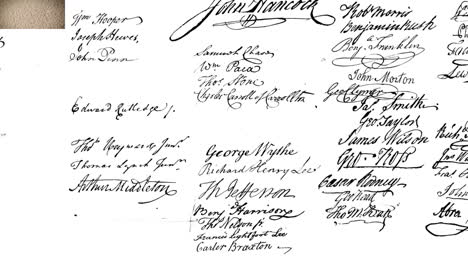 Wm Hooper
Joseph Hewes,
John Penn
Edward Rutledge /.
Thos Heyward Junr.
Thomas Lynch Junr.
Arthur Middleton
John Hancock
Samuel Chase
Wm Paca
Thos Stone
Charles Carroll of Carrollton
George Wythe
Richard Henry Lee
Th Jefferson
Benj Harrison
Thos Nelson jr.
Francis Lightfoot Lee
Carter Braxton
Robt Morris
Benjamin Rush
Benj Franklin
John Morton
Geo Clymer
Jas Smith
Geo Taylor
James Wilson
Geo Ross
Caesar Rodney
Geo Read
Tho M:Kean
John
Abra